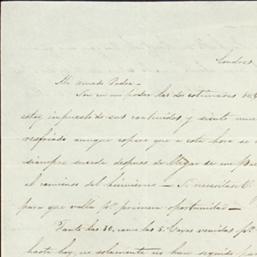 Londres
Mi amado Padre –
Son en mi poder las dos estimadas
estoy impuesto de sus contenidos y siento mu
resfriado aunque espero que a esta hora se
siempre sucede despues de llegar de un
el comienso del himbierno – Si necesitan
para que valla pr. primera oportunidad –
Tanto las 30, como las 5. Cajas venidas pr.
hasta hoy, no solamente no han seguido